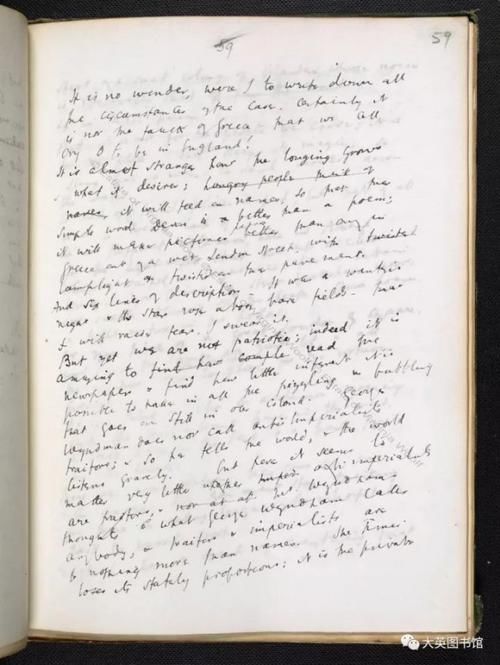 59
59
It is no wonder, were I to write down all
the circumstances of the case. Certainly it
is not the fault of Greece that we all
cry O to be in England!
It is almost strange how the longing grows
what it desires; hungry people think of
names, it will feed on names so that the
simple word Devon is a better than a poem;
it will make pictures better than any in
Greece out of a wet London street with
lamplight twisted on the pavement.
And six lines of description - It was a winter's
night & the stars rose above bare fields - that
I will raise tears. I swear it.
But yet we are not patriotic; indeed it is
amazing to find how people read the
newspapers & find how little interest it is
possible to take in all the bubbling
that goes on still in our island. George
Wyndham does not call anti imperialists
traitors; & so he tells the world, & the world
listens gravely. But here it seems to
matter very little whether anti imperialists
are traitors, or not at all
thought of what George Wyndham calls
anybody; & traitors & imperialists are
to nothing more than names. The Times
loses its stately proportions; it is the private
大英图书馆